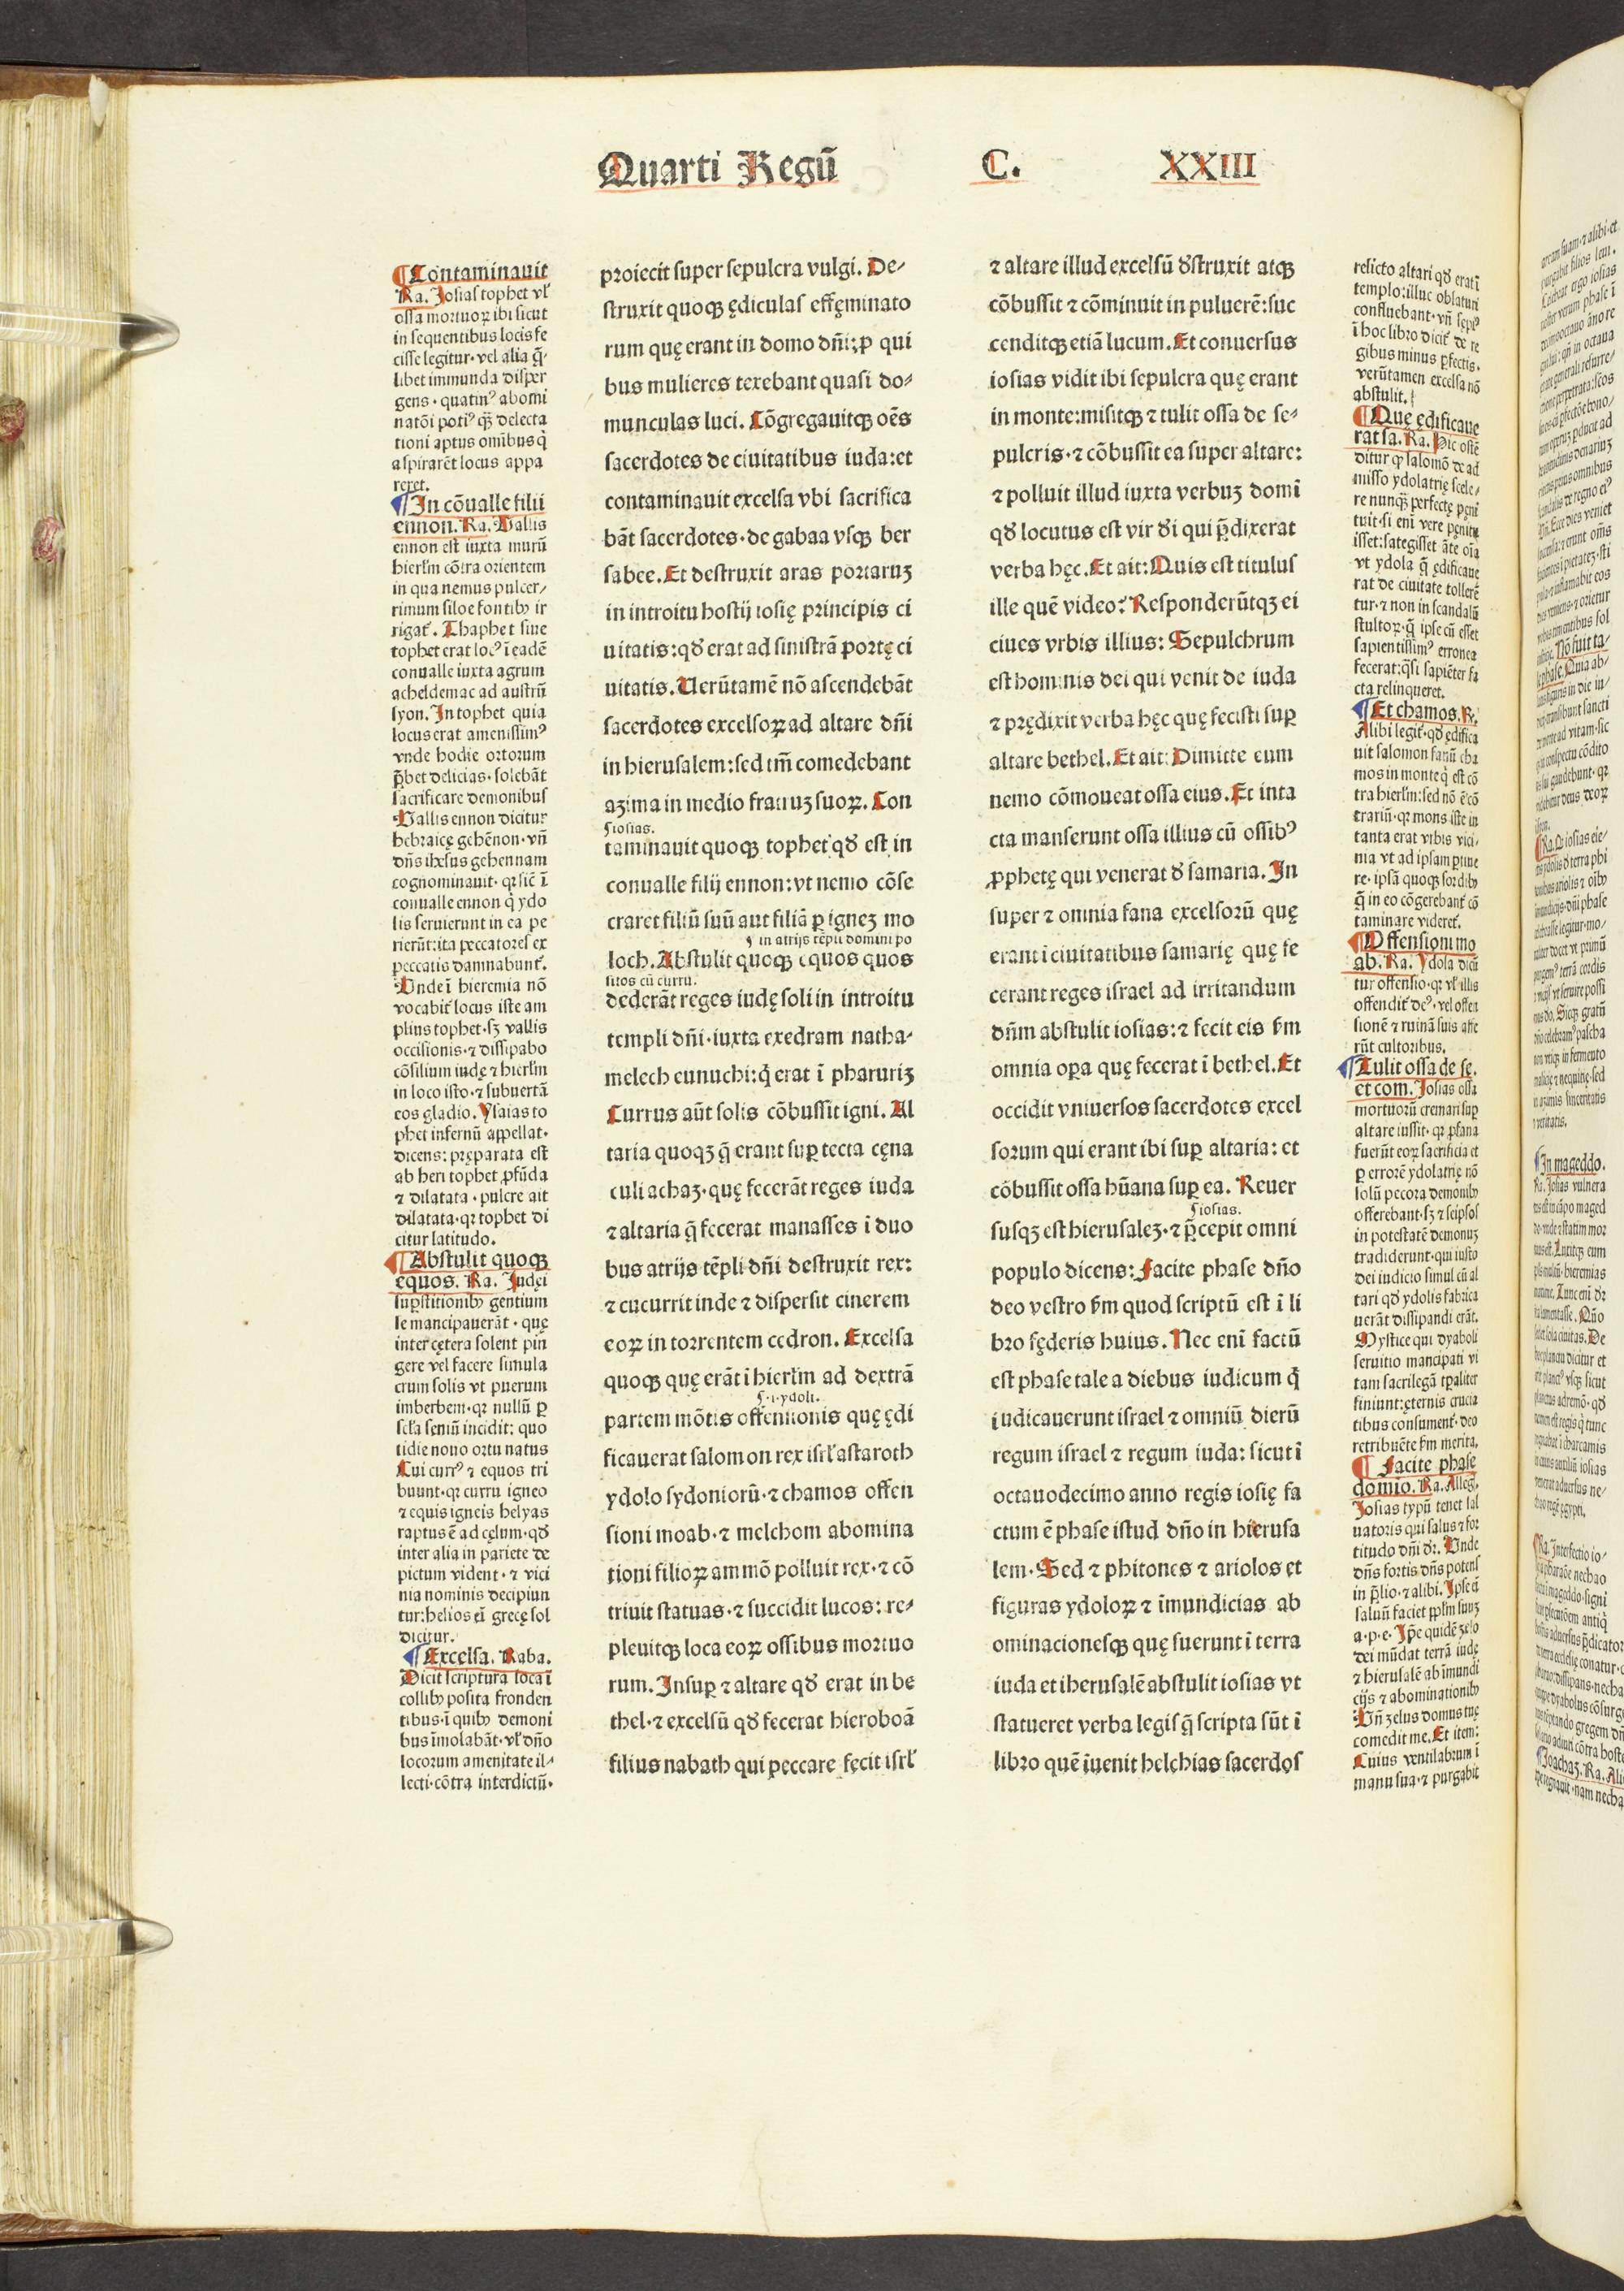 Quarti Regū C. XXIII
¶Contaminauit
Ra. Josias tophet vl'
ossa mortuoꝝ ibi sicut
in sequentibus locis fe
cisse legitur· vel alia q̄·
libet immunda disper
gens· quatin⁹ abomi
natōi poti⁹ q̄ꝫ delecta
tioni aptus omībus q̇
aspirarēt locus appa
reret.
¶In cōualle filii
ennon. Ra. Vallis
ennon est iuxta murū
hierl'm cōtra orientem
in qua nemus pulcer/
rimum siloe fontibꝰ ir
rigat'. Thaphet siue
tophet erat loc⁹ ī eadē
conualle iuxta agrum
acheldemac ad austrū
syon. In tophet quia
locus erat amenissim⁹
vnde hodie ortorum
p̄bet delicias· solebāt
sacrificare demonibus
Vallis ennon dicitur
hebraicę gehēnon· vñ
dñs ihesus gehennam
cognominauit· qꝛ sic̄ ī
conualle ennon q̇ ydo
lis seruierunt in ea pe
rierūt: ita peccatores ex
peccatis damnabunt'.
Unde ī hieremia nō
vocabit' locus iste am
plius tophet· sꝫ vallis
occisionis· ⁊ dissipabo
cōsilium iudę ⁊ hierl'm
in loco isto· ⁊ subuertā
eos gladio. Ysaias to
phet infernū appellat·
dicens: pręparata est
ab heri tophet ꝓfūda
⁊ dilatata· pulcre ait
dilatata· qꝛ tophet di
citur latitudo.
¶Abstulit quoqꝫ
equos. Ra. Judęi
suꝑstitionibꝰ gentium
se mancipauerāt· quę
inter cętera solent pin̄
gere vel facere simula
crum solis vt puerum
imberbem· qꝛ nullū ꝑ
scl'a seniū incidit: quo
tidie nouo ortu natus
Cui curr⁹ ⁊ equos tri
buunt· qꝛ curru igneo
⁊ equis igneis helyas
raptus ē ad cęlum· qđ
inter alia in pariete de
pictum vident· ⁊ vici
nia nominis decipiun
tur: helios eī grecę sol
dicitur.
¶Excelsa. Raba.
Dicit scriptura loca ī
collibꝰ posita fronden
tibus· ī quibꝰ demoni
bus īmolabāt· vl' dn̄o
locorum amenitate il/
lecti· cōtra interdictū·
proiecit super sepulcra vulgi. De/
struxit quoqꝫ ędiculas effęminato
rum quę erant in domo dñi; ꝓ qui
bus mulieres texebant quasi do/
munculas luci. Cōgregauitqꝫ oēs
sacerdotes de ciuitatibus iuda: et
contaminauit excelsa vbi sacrifica
bāt sacerdotes· de gabaa vsqꝫ ber
sabee. Et destruxit aras portaruꝫ
in introitu hostij iosię principis ci
uitatis: qđ erat ad sinistrā portę ci
uitatis. Verūtamē nō ascendebāt
sacerdotes excelsoꝝ ad altare dñi
in hierusalem: sed tm̄ comedebant
azima in medio fratruꝫ suoꝝ. Con
ſiosias.
taminauit quoqꝫ tophet qđ est in
conualle filij ennon: vt nemo cōse
craret filiū suū aut filiā ꝑ igneꝫ mo
ſ in atrijs tēpli domini po
loch. Abstulit quoqꝫ equos quos
sitos cū curru.
dederāt reges iudę soli in introitu
templi dñi· iuxta exedram natha/
melech eunuchi: q̇ erat ī pharuriꝫ
Currus aūt solis cōbussit igni. Al
taria quoqꝫ q̄ erant suꝑ tecta cęna
culi achaz· quę fecerāt reges iuda
⁊ altaria q̄ fecerat manasses ī duo
bus atrijs tēpli dñi destruxit rex:
⁊ cucurrit inde ⁊ dispersit cinerem
eoꝝ in torrentem cedron. Excelsa
quoqꝫ quę erāt ī hierl'm ad dextrā
ſ·i·ydoli.
partem mōtis offensionis quę ędi
ficauerat salomon rex isrl' astaroth
ydolo sydoniorū· ⁊ chamos offen
sioni moab· ⁊ melchom abomina
tioni filioꝝ ammō polluit rex· ⁊ cō
triuit statuas· ⁊ succidit lucos: re/
pleuitqꝫ loca eoꝝ ossibus mortuo
rum. Insuꝑ ⁊ altare qđ erat in be
thel· ⁊ excelsū qđ fecerat hieroboā
filius nabath qui peccare fecit isrl'
⁊ altare illud excelsū đstruxit atqꝫ
cōbussit ⁊ cōminuit in puluerē: suc
cenditqꝫ etiā lucum. Et conuersus
iosias vidit ibi sepulcra quę erant
in monte: misitqꝫ ⁊ tulit ossa de se/
pulcris· ⁊ cōbussit ea super altare:
⁊ polluit illud iuxta verbuꝫ domī
qđ locutus est vir đi qui p̄dixerat
verba hęc. Et ait: Quis est titulus
ille quē video? Responderūtqꝫ ei
ciues vrbis illius: Sepulchrum
est hominis dei qui venit de iuda
⁊ prędixit verba hęc quę fecisti suꝑ
altare bethel. Et ait: Dimitte eum
nemo cōmoueat ossa eius. Et inta
cta manserunt ossa illius cū ossib⁹
ꝓphetę qui venerat đ samaria. In
super ⁊ omnia fana excelsorū quę
erant ī ciuitatibus samarię quę fe
cerant reges israel ad irritandum
dñm abstulit iosias: ⁊ fecit eis ẜm
omnia oꝑa quę fecerat ī bethel. Et
occidit vniuersos sacerdotes excel
sorum qui erant ibi suꝑ altaria: et
cōbussit ossa hūana suꝑ ea. Reuer
ſiosias.
susqꝫ est hierusaleꝫ· ⁊ p̄cepit omni
populo dicens: Facite phase dn̄o
deo vestro ẜm quod scriptū est ī li
bro fęderis huius. Nec enī factū
est phase tale a diebus iudicum q̇
iudicauerunt israel ⁊ omniū dierū
regum israel ⁊ regum iuda: sicut ī
octauodecimo anno regis iosię fa
ctum ē phase istud dn̄o in hierusa
lem· Sed ⁊ phitones ⁊ ariolos et
figuras ydoloꝝ ⁊ īmundicias ab
ominacionesqꝫ quę fuerunt ī terra
iuda et iherusalē abstulit iosias vt
statueret verba legis q̄ scripta sūt ī
libro quē īuenit helchias sacerdos
relicto altari qđ erat ī
templo: illuc oblaturi
confluebant· vñ sępi⁹
ī hoc libro dicit' de re
gibus minus ꝑfectis.
verūtamen excelsa nō
abstulit.
¶Que ędificaue
rat sa. Ra. Hic ostē
ditur ꝙ salomō de ad
misso ydolatrię scele/
re nunq̄ꝫ perfectę pęni
tuit· si enī vere pęnitu
isset: sategisset āte oīa
vt ydola q̄ ędificaue
rat de ciuitate tollerē
tur· ⁊ non in scandalū
stultoꝝ· q̄ ipse cū esset
sapientissim⁹ erronea
fecerat: q̄si sapiēter fa
cta relinqueret.
¶Et chamos. R.
Alibi legit'· qđ ędifica
uit salomon fanū cha
mos in monte q̇ est cō
tra hierl'm: sed nō ē cō
trariū· qꝛ mons iste in
tanta erat vrbis vici·
nia vt ad ipsam ptine
re· ipsā quoqꝫ sordibꝰ
q̄ in eo cōgerebant' cō
taminare videret'.
¶Offensioni mo
ab. Ra. Ydola dicū
tur offensio· qꝛ vl' illis
offendit' de⁹· vel offen
sionē ⁊ ruinā suis affe
rūt cultoribus.
¶Tulit ossa de se.
et com. Josias ossa
mortuorū cremari suꝑ
altare iussit· qꝛ ꝓfana
fuerūt eoꝝ sacrificia et
ꝑ errorē ydolatrię nō
solū pecora demonibꝰ
offerebant· sꝫ ⁊ seipsos
in potestatē demonuꝫ
tradiderunt· qui iusto
dei iudicio simul cū al
tari qđ ydolis fabrica
uerāt dissipandi erāt.
Mystice qui dyaboli
seruitio mancipati vi
tam sacrilegā tꝑaliter
finiunt: ęternis crucia
tibus consument'· deo
retribuēte ẜm merita.
¶Facite phase
domio. Ra. Alleg.
Josias typū tenet sal
uatoris qui salus ⁊ for
titudo dñi dr̄. Unde
dñs fortis dñs potens
in p̄lio· ⁊ alibi. Ipse ei
saluū faciet pp̄lm suuꝫ
a·p·e· Ip̄e quidē zelo
dei mūdat terrā iudę
⁊ hierusalē ab īmundi
cijs ⁊ abominationibꝰ
Vñ zelus domus tuę
comedit me. Et item:
Cuius ventilabrum ī
manu sua· ⁊ purgabit